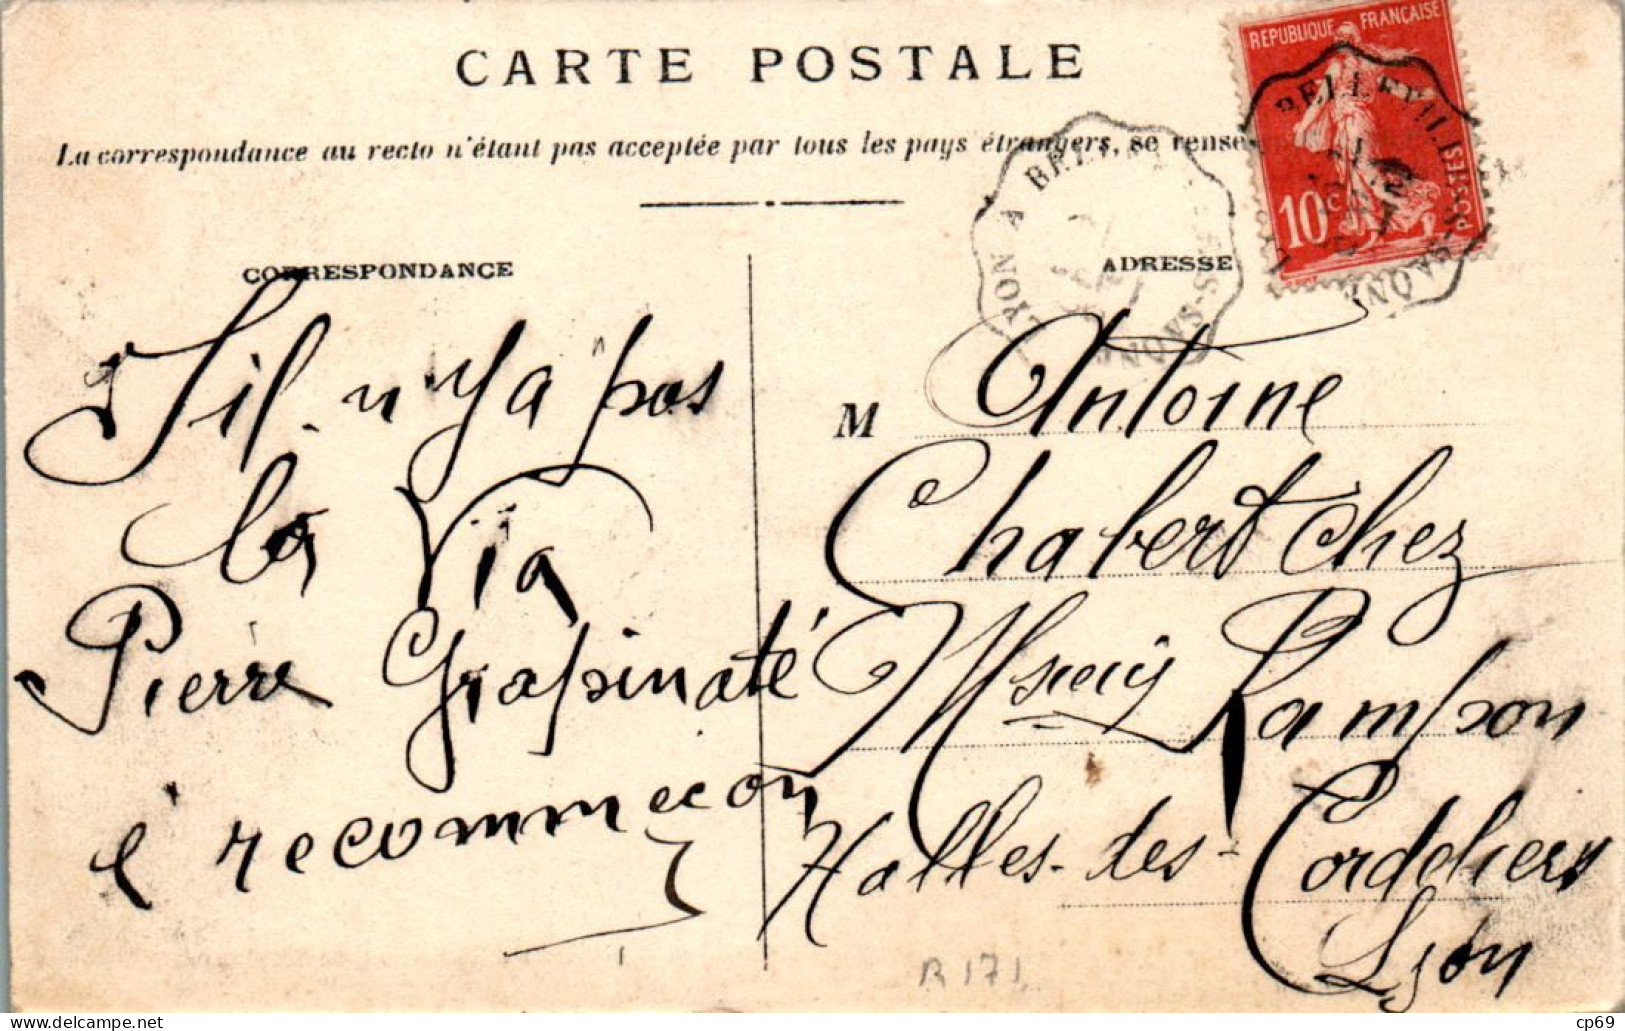 CARTE POSTALE
La correspondance au recto n'étant pas acceptée par tous les pays étrangers, se rense
REPUBLIQUE FRANÇAISE
10 c
POSTES
BELLEVILLE-S-SAÔNE
LYON A BELLEVILLE-S-SAÔNE
CORRESPONDANCE
S'il n'y a pas
la Via
Pierre Grapinaté
é recommeçon
ADRESSE
M Antoine
Chabert chez
Msieuŷ Rampon
Halles-des-Cordeliers
Lyon
R 171
cp69